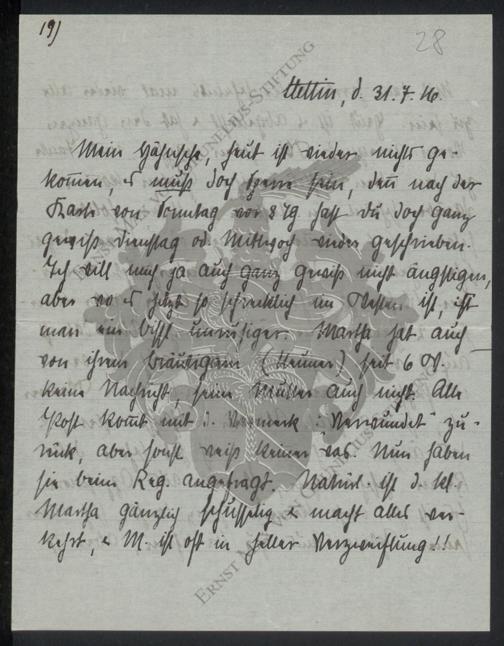 19)
28
Stettin, d. 31.7.16.
Mein Häschen, heut ist wieder nichts ge-
kommen, es muß doch sein, denn nach der
Karte von Sonntag vor 8 Tg hast du doch ganz
gewiß Dienstag od. Mittwoch wieder geschrieben.
Ich will mich ja auch ganz gewiß nicht ängstigen,
aber wo es jetzt so schrecklich im Westen ist, ist
man ein bissl unruhiger. Martha hat auch
von ihrem Bräutigam (Heumer) seit 6 W.
keine Nachricht, seine Mutter auch nicht. Alle
Post kommt mit d. Vermerk "Verwundet" zu-
rück, aber sonst weiß keiner was. Nun haben
sie beim Reg. angefragt. Natürl. ist d. kl.
Martha gänzlich schusselig & macht alles ver-
kehrt, & M. ist oft in heller Verzweiflung!!
ERNST-STIFTUNG